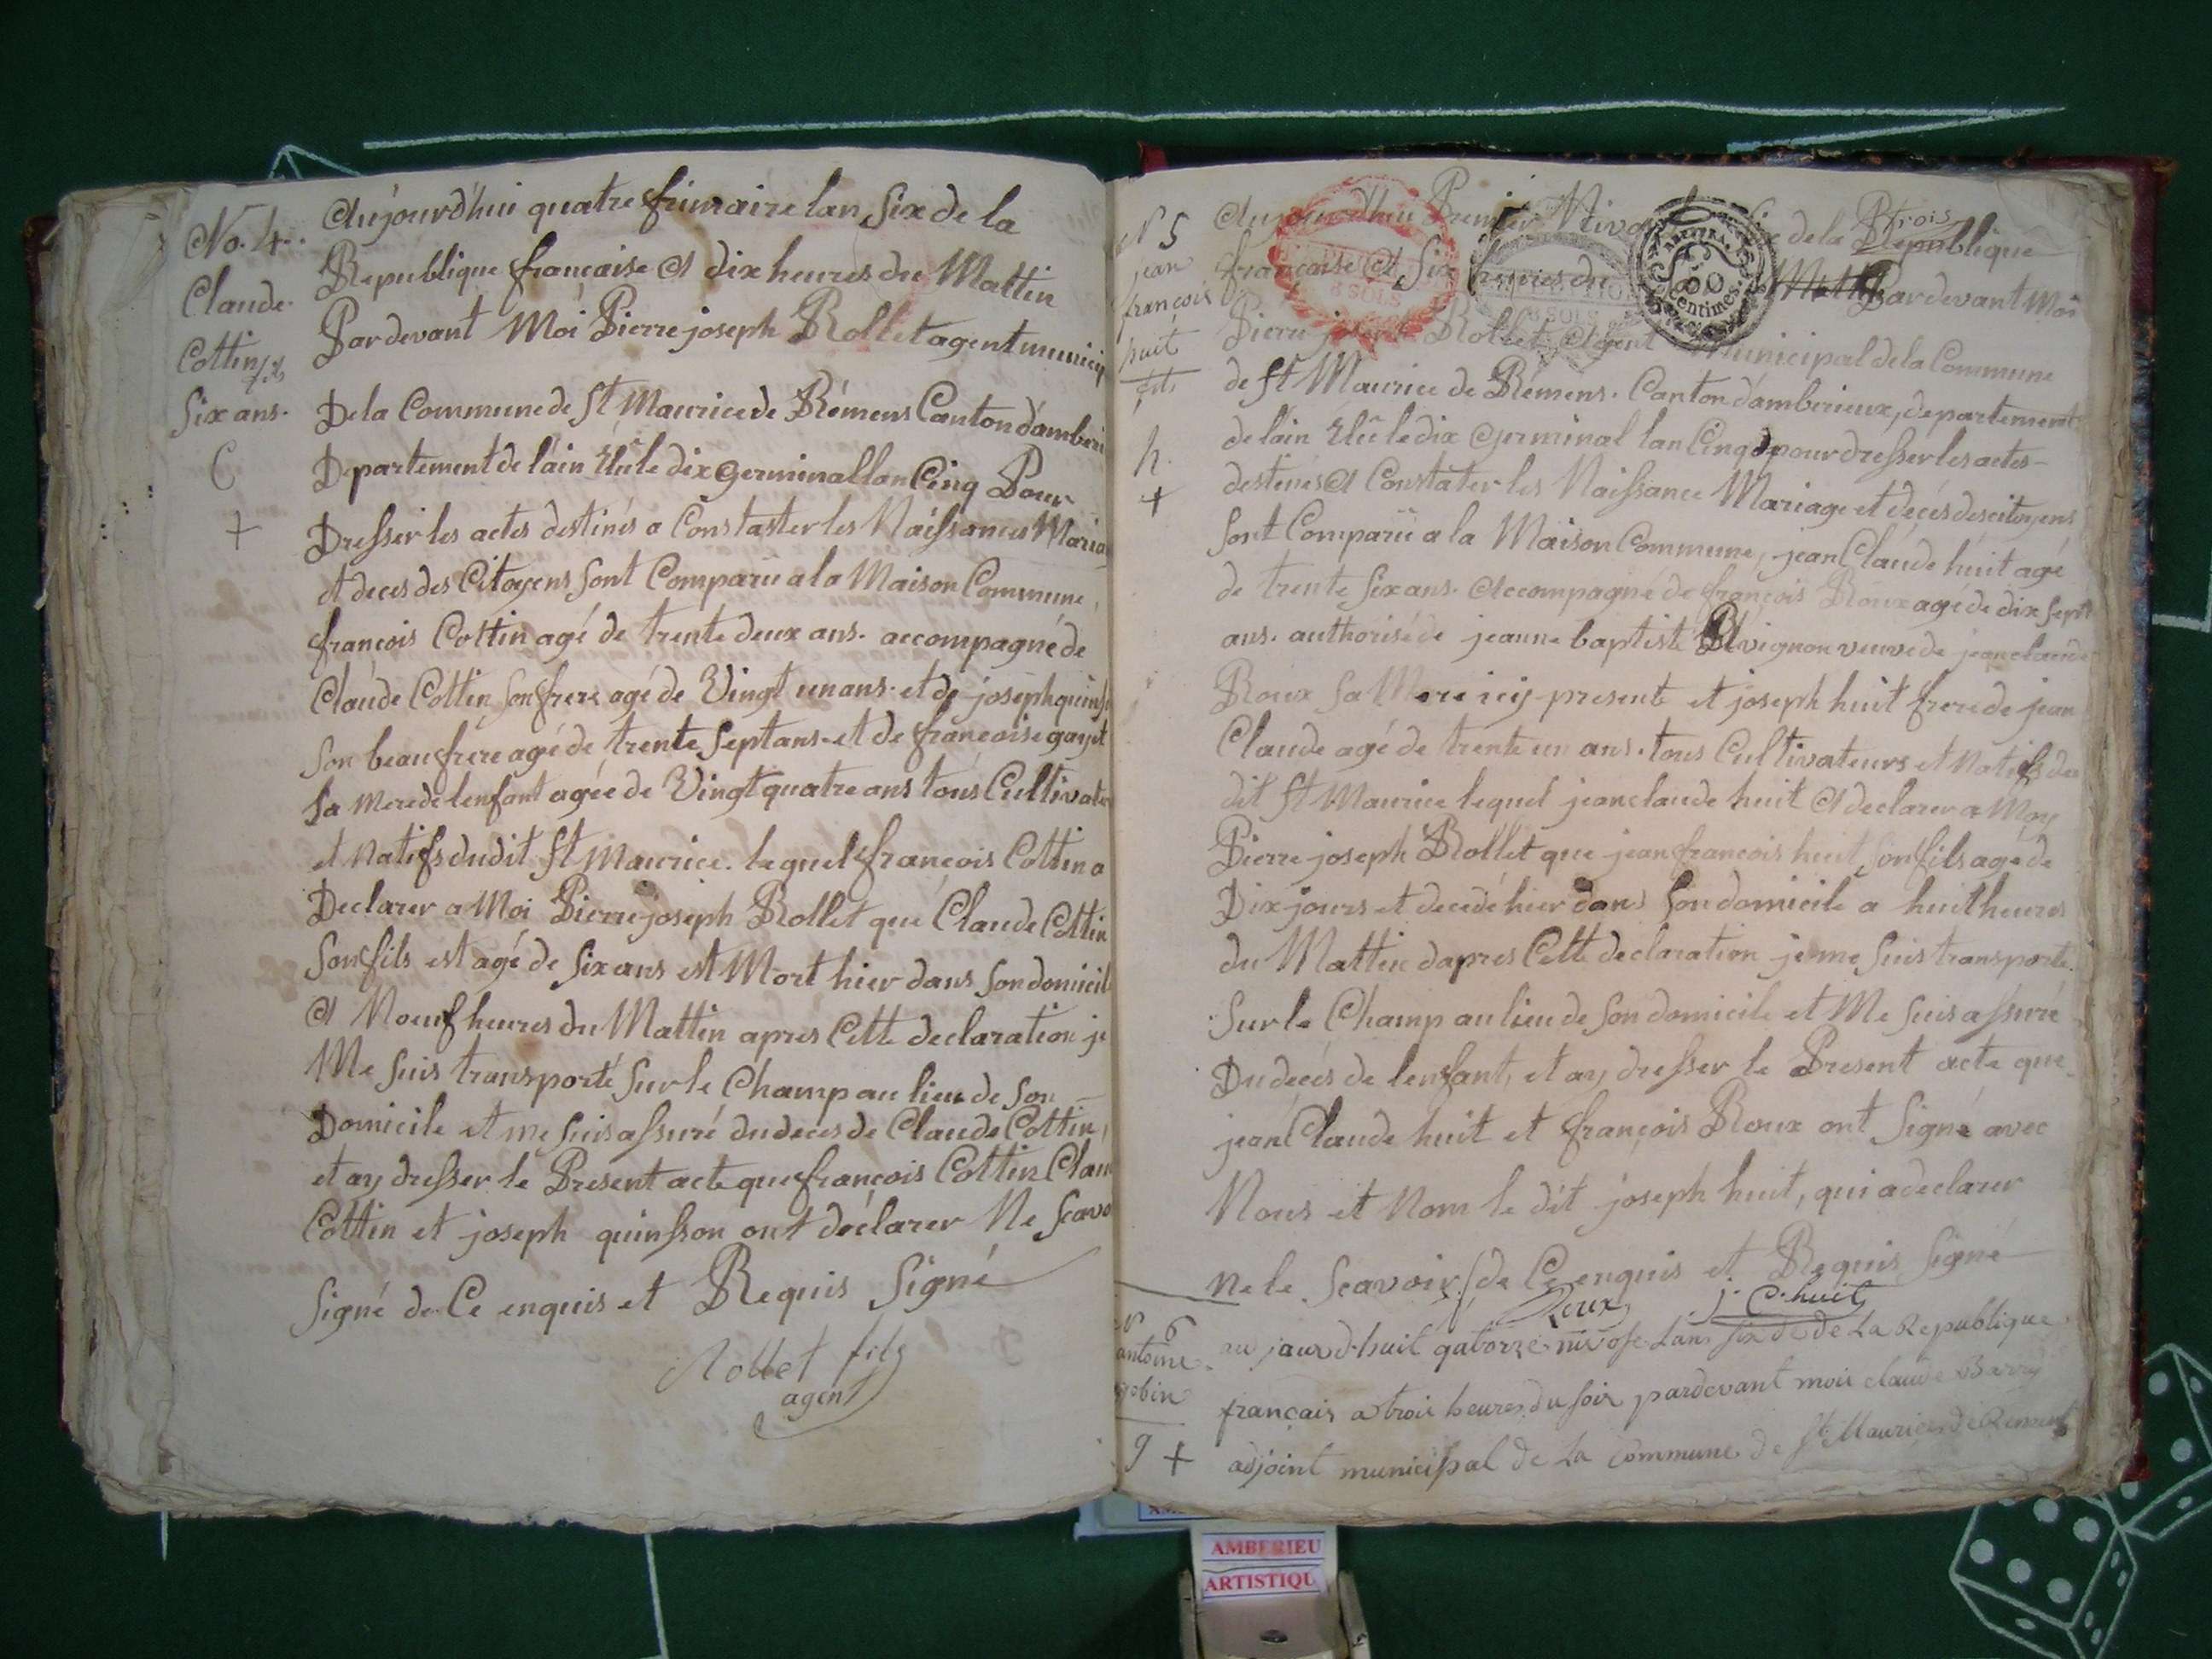 No. 4.
Claude
Cottin fils
Six ans.
C
+
Aujourd'hui quatre frimaire lan Six de la
Republique française A dix heures du Mattin
Pardevant Moi Pierre joseph Rollet agent municip
De la Commune de St Maurice de Rémens Canton d'amberi
Departement de lain Élu le dix Germinal lan Cinq Pour
Dresser les actes destinés a Constaster les Naissances Maria
et deces des Citoyens Sont Comparu a la Maison Commune,
françois Cottin agé de trente deux ans. accompagné de
Claude Cottin Son frere agé de Vingt un ans. et de joseph quinss
Son beau frere agé de trente Sept ans. et de francoise gayet
Sa Mere de lenfant agée de Vingt quatre ans tous Cultivate
et Natifs dudit St Maurice. lequel françois Cottin a
Declarer a Moi Pierre joseph Rollet que Claude Cottin
Son fils est agé de Six ans est Mort hier dans Son domicil
A Noeuf heures du Mattin apres Cette declaration je
Me Suis transporté Sur le Champ au lieu de Son
Domicile et me Suis assuré du deces de Claude Cottin,
et ay dresser le Present acte que françois Cottin Clau
Cottin et joseph quinsson ont déclarer Ne Scavo
Signé de Ce enquis et Requis Signé
Rollet fils
agent
N 5
jean
françois
huit
fils
h.
+
Aujourdhui Premier Nivo Six de la Republique
trois
française A Six heures du Pardevant Moi
Pierre joseph Rollet Agent Municipal de la Commune
de St Maurice de Rémens. Canton d'amberieux, departement
de lain Élu le dix Germinal lan Cinq pour dresser les actes
destinés A Constater les Naissance Mariage et decés des citoyens
Sont Comparu a la Maison Commune, jean Claude huit agé
de trente Six ans. Accompagné de françois Roux agé de dix Sept
ans. authorisé de jeanne baptiste vignon veuve de jean claude
Roux Sa Mere icy present et joseph huit frere de jean
Claude agé de trente un ans. tous Cultivateurs et Natifs du
dit St Maurice lequel jean claude huit A declarer a Moy
Pierre joseph Rollet que jean francois huit Son fils agé de
Dix jours et decedé hier dans Son domicile a huit heures
du Mattin dapres Cette declaration je me Suis transporté
Sur le Champ au lieu de Son domicile et Me Suis assuré
Du decés de lenfant, et ay dresser le Present acte que
jean Claude huit et françois Roux ont Signé avec
Nous et Nom le dit joseph huit, qui a declarer
Ne le Scavoir de Ce enquis et Requis Signé
Roux j. C. huit
N 6
antoine
gobin
g +
au jourd.huit quatorze nivose Lans six de de La Republique
français a trois heures du soir pardevant mois claude Barry
adjoint municipal de La commune de St Maurice de Remens
8 SOLS
8 SOLS
50
Centimes.
AMBERIEU
ARTISTIQU